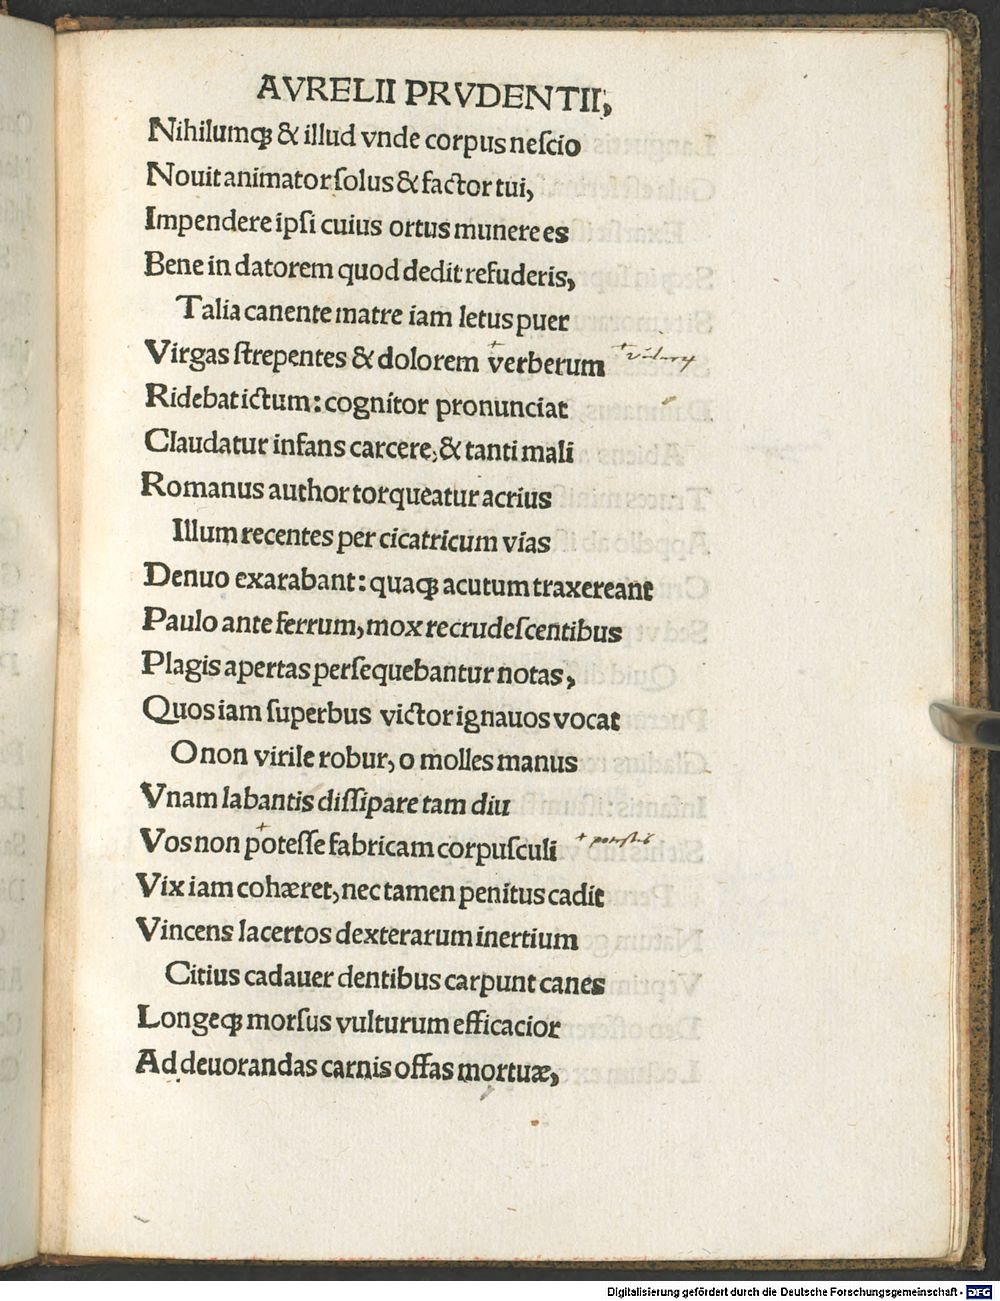 AVRELII PRVDENTII,
Nihilumqꝫ & illud vnde corpus neſcio
Nouit animator ſolus & factor tui,
Impendere ipſi cuius ortus munere es
Bene in datorem quod dedit refuderis,
Talia canente matre iam letus puer
Virgas ſtrepentes & dolorem verberum
Ridebat ictum: cognitor pronunciat
Claudatur infans carcere, & tanti mali
Romanus author torqueatur acrius
Illum recentes per cicatricum vias
Denuo exarabant: quaqꝫ acutum traxereant
Paulo ante ferrum, mox recrudeſcentibus
Plagis apertas perſequebantur notas,
Quos iam ſuperbus victor ignauos vocat
O non virile robur, o molles manus
Vnam labantis diſſipare tam diu
Vos non poteſſe fabricam corpuſculi
Vix iam cohæret, nec tamen penitus cadit
Vincens lacertos dexterarum inertium
Citius cadauer dentibus carpunt canes
Longeqꝫ morſus vulturum efficacior
Ad deuorandas carnis offas mortuæ,
Digitalisierung gefördert durch die Deutsche Forschungsgemeinschaft - DFG